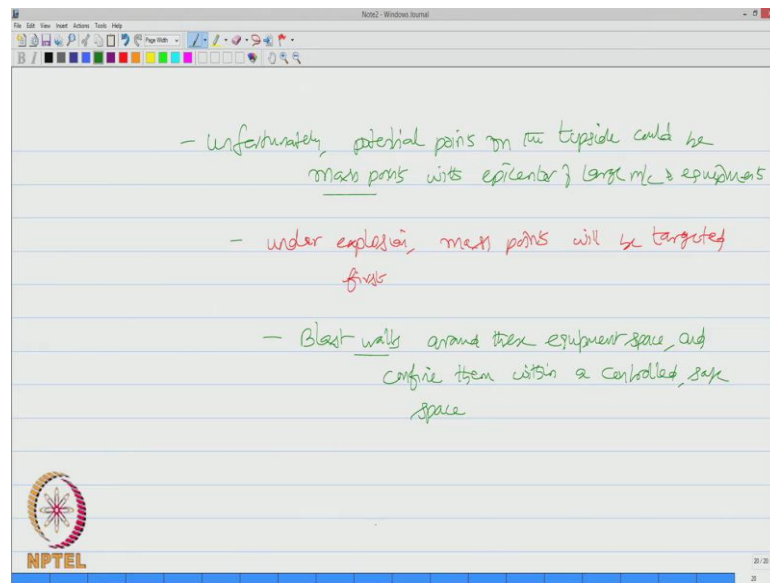 Note2 - Windows Journal
File Edit View Insert Actions Tools Help
Page Width
B I
- Unfortunately, potential points on the topside could be
mass points with epicenter of large m/c & equipments
- under explosion, mass points will be targeted
first
- Blast walls around these equipment space, and
confine them within a controlled, safe
space
NPTEL
20 / 20
20